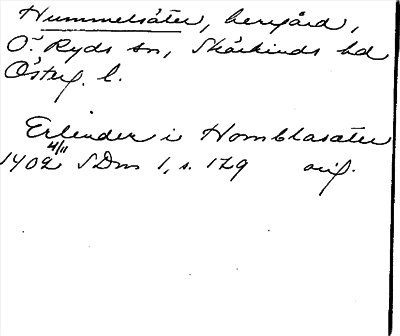 Hummelsäter, herrgård,
Ö. Ryds sn, Skärkinds hd
Östg. l.
Erlender i Homblasäter
1402 4/11 SDns 1, s. 179 orig.